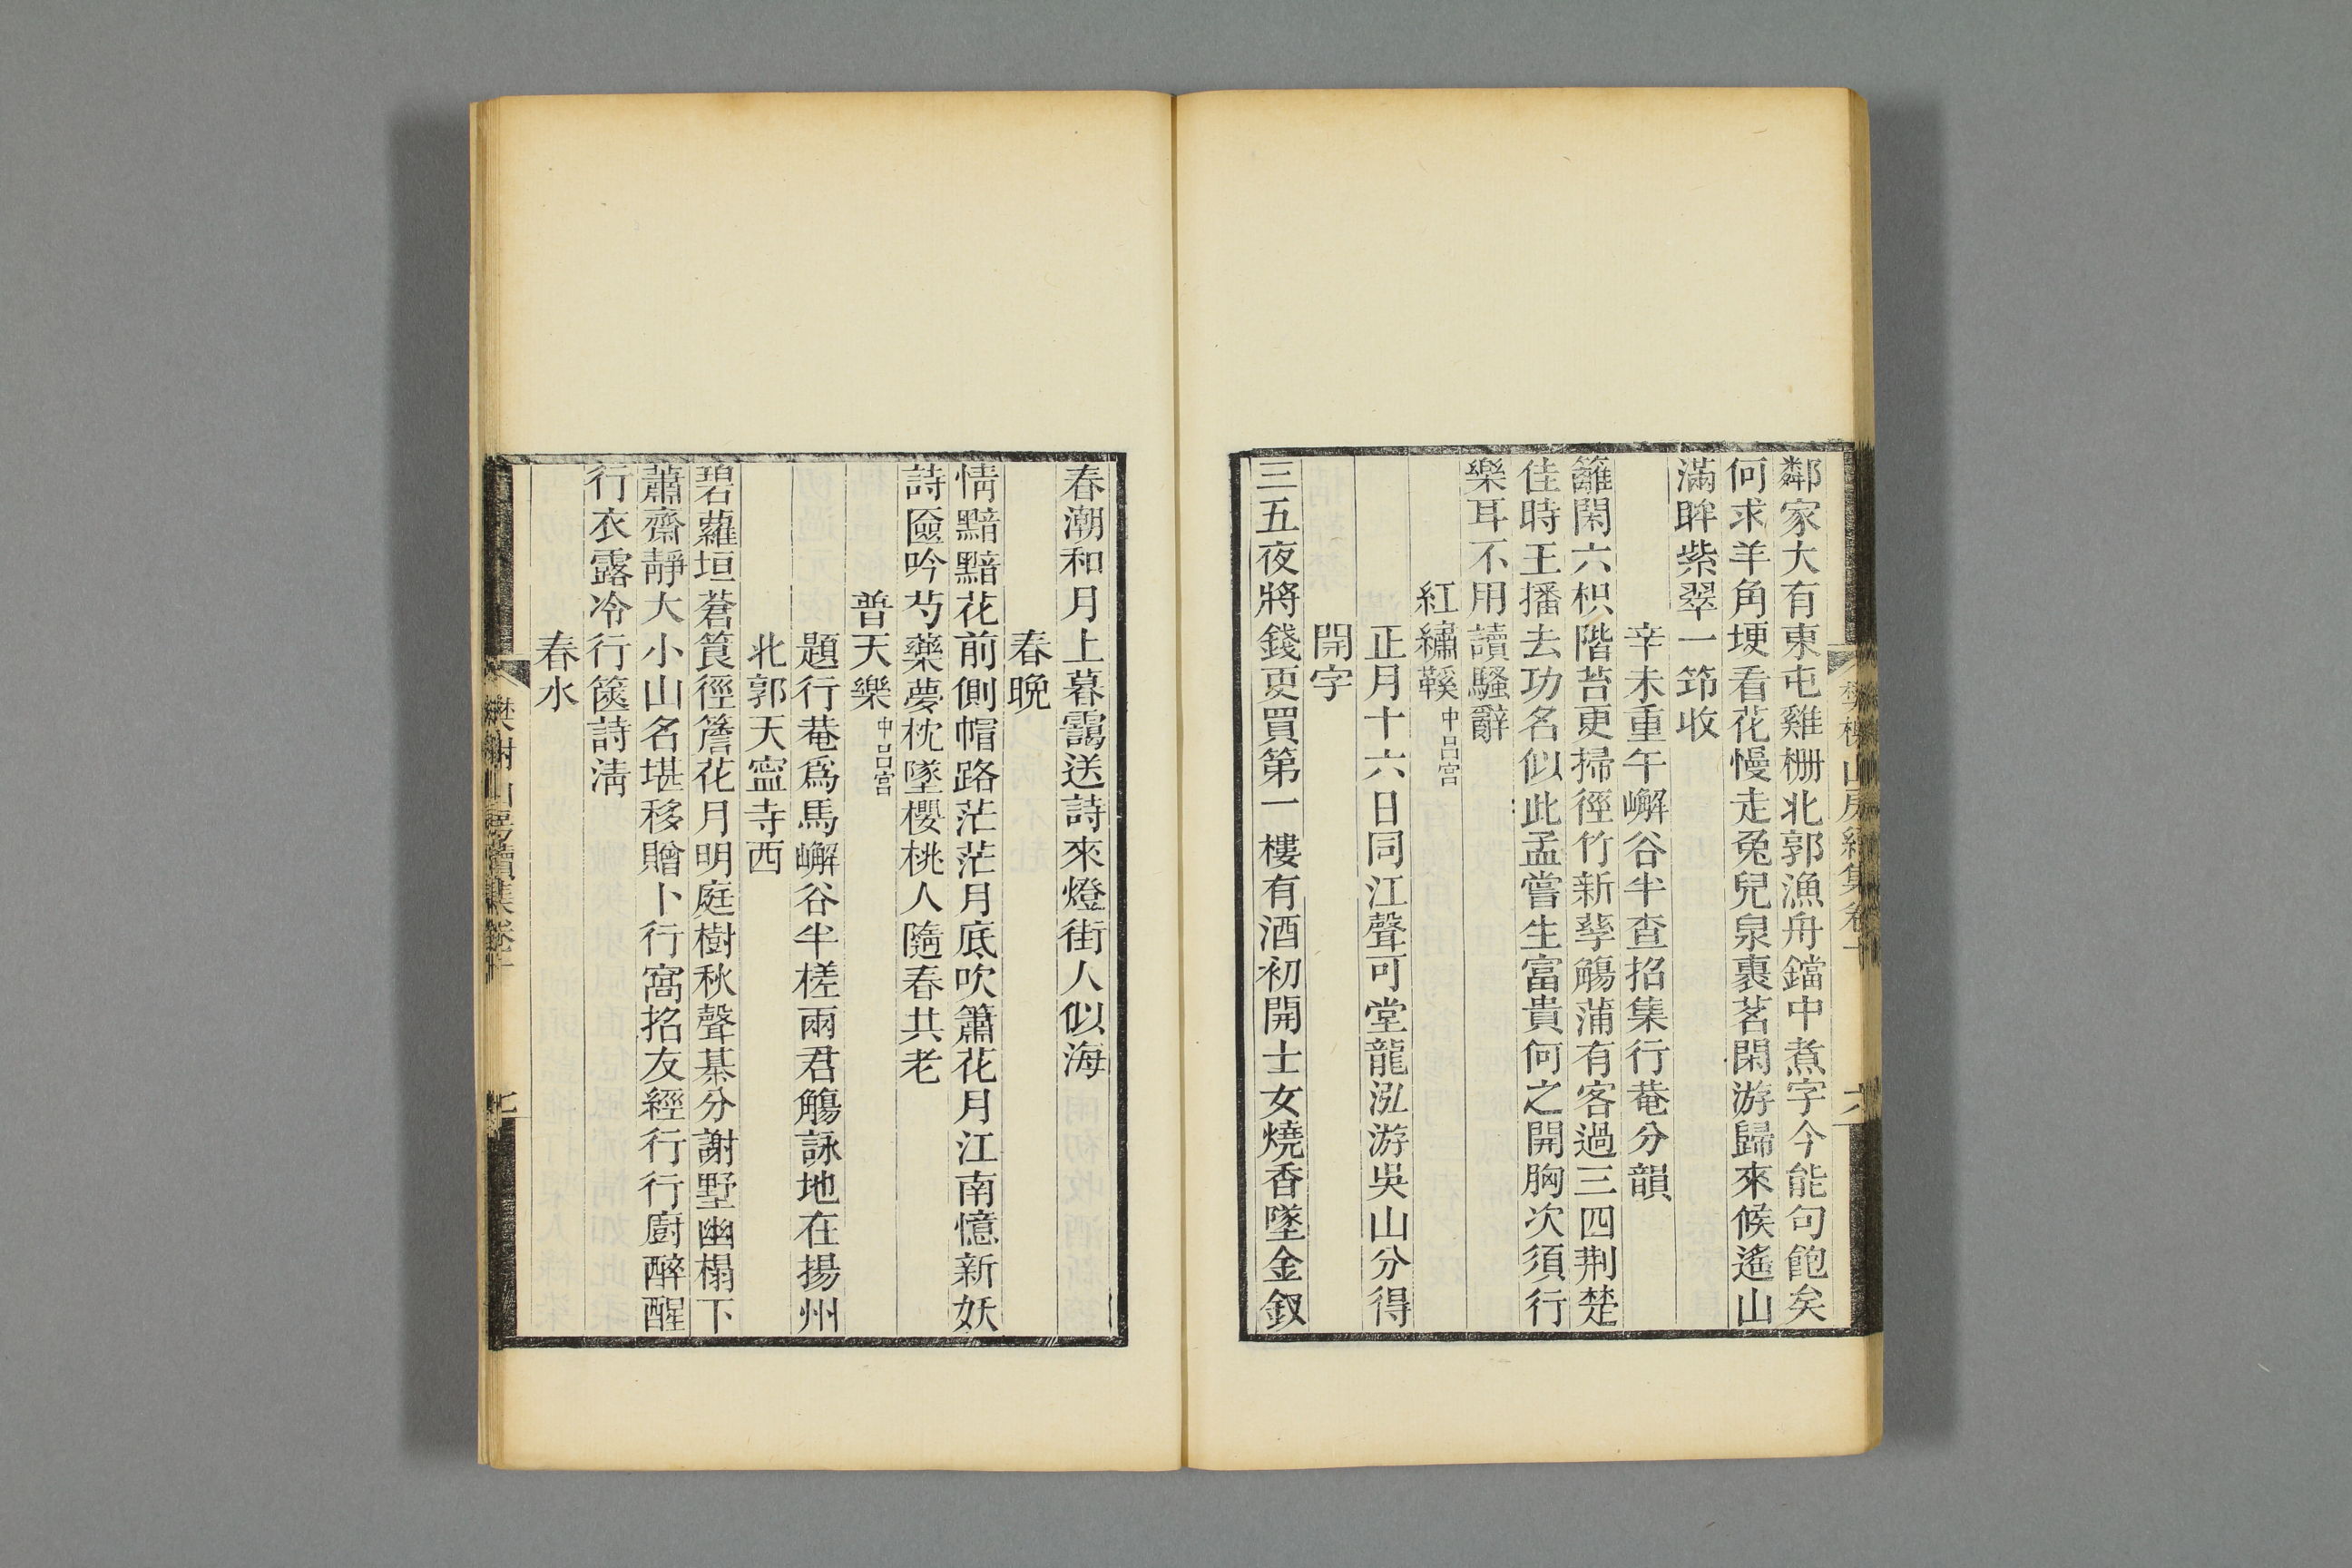 鄰家大有東屯雞柵北郭漁舟鐺中煮字今能句飽矣
何求羊角埂看花慢走兔兒泉裹茗閑游歸來候遙山
滿眸紫翠一笻收
辛未重午嶰谷半查招集行菴分韻
籬閑六枳階苔更掃徑竹新孳觴蒲有客過三四荆楚
佳時王播去功名似此孟嘗生富貴何之開胸次須行
樂耳不用讀騷辭
紅繡鞵中呂宮
正月十六日同江聲可堂龍泓游吳山分得
開字
三五夜將錢更買第一樓有酒初開士女燒香墜金釵
春潮和月上暮靄送詩來燈街人似海
春晚
情黯黯花前側帽路茫茫月底吹簫花月江南憶新妖
詩匳吟芍藥夢枕墜櫻桃人隨春共老
普天樂中呂宮
題行菴爲馬嶰谷半槎兩君觴詠地在揚州
北郭天寍寺西
碧蘿垣蒼筤徑簷花月明庭樹秋聲棊分謝墅幽榻下
蕭齋靜大小山名堪移贈卜行窩招友經行行廚醉醒
行衣露冷行篋詩清
春水
樊榭山房續集卷十
七